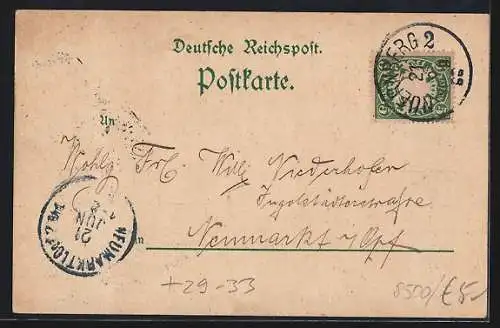 Deutsche Reichspost.
Postkarte.
NUERNBERG 2
An
Frl. Willy Niederhofer
Ingolstädterstrasse
Neumarkt i/Opf
in
21
JUN
NEUMARKT (OPF.
+29-33
8500/€5-